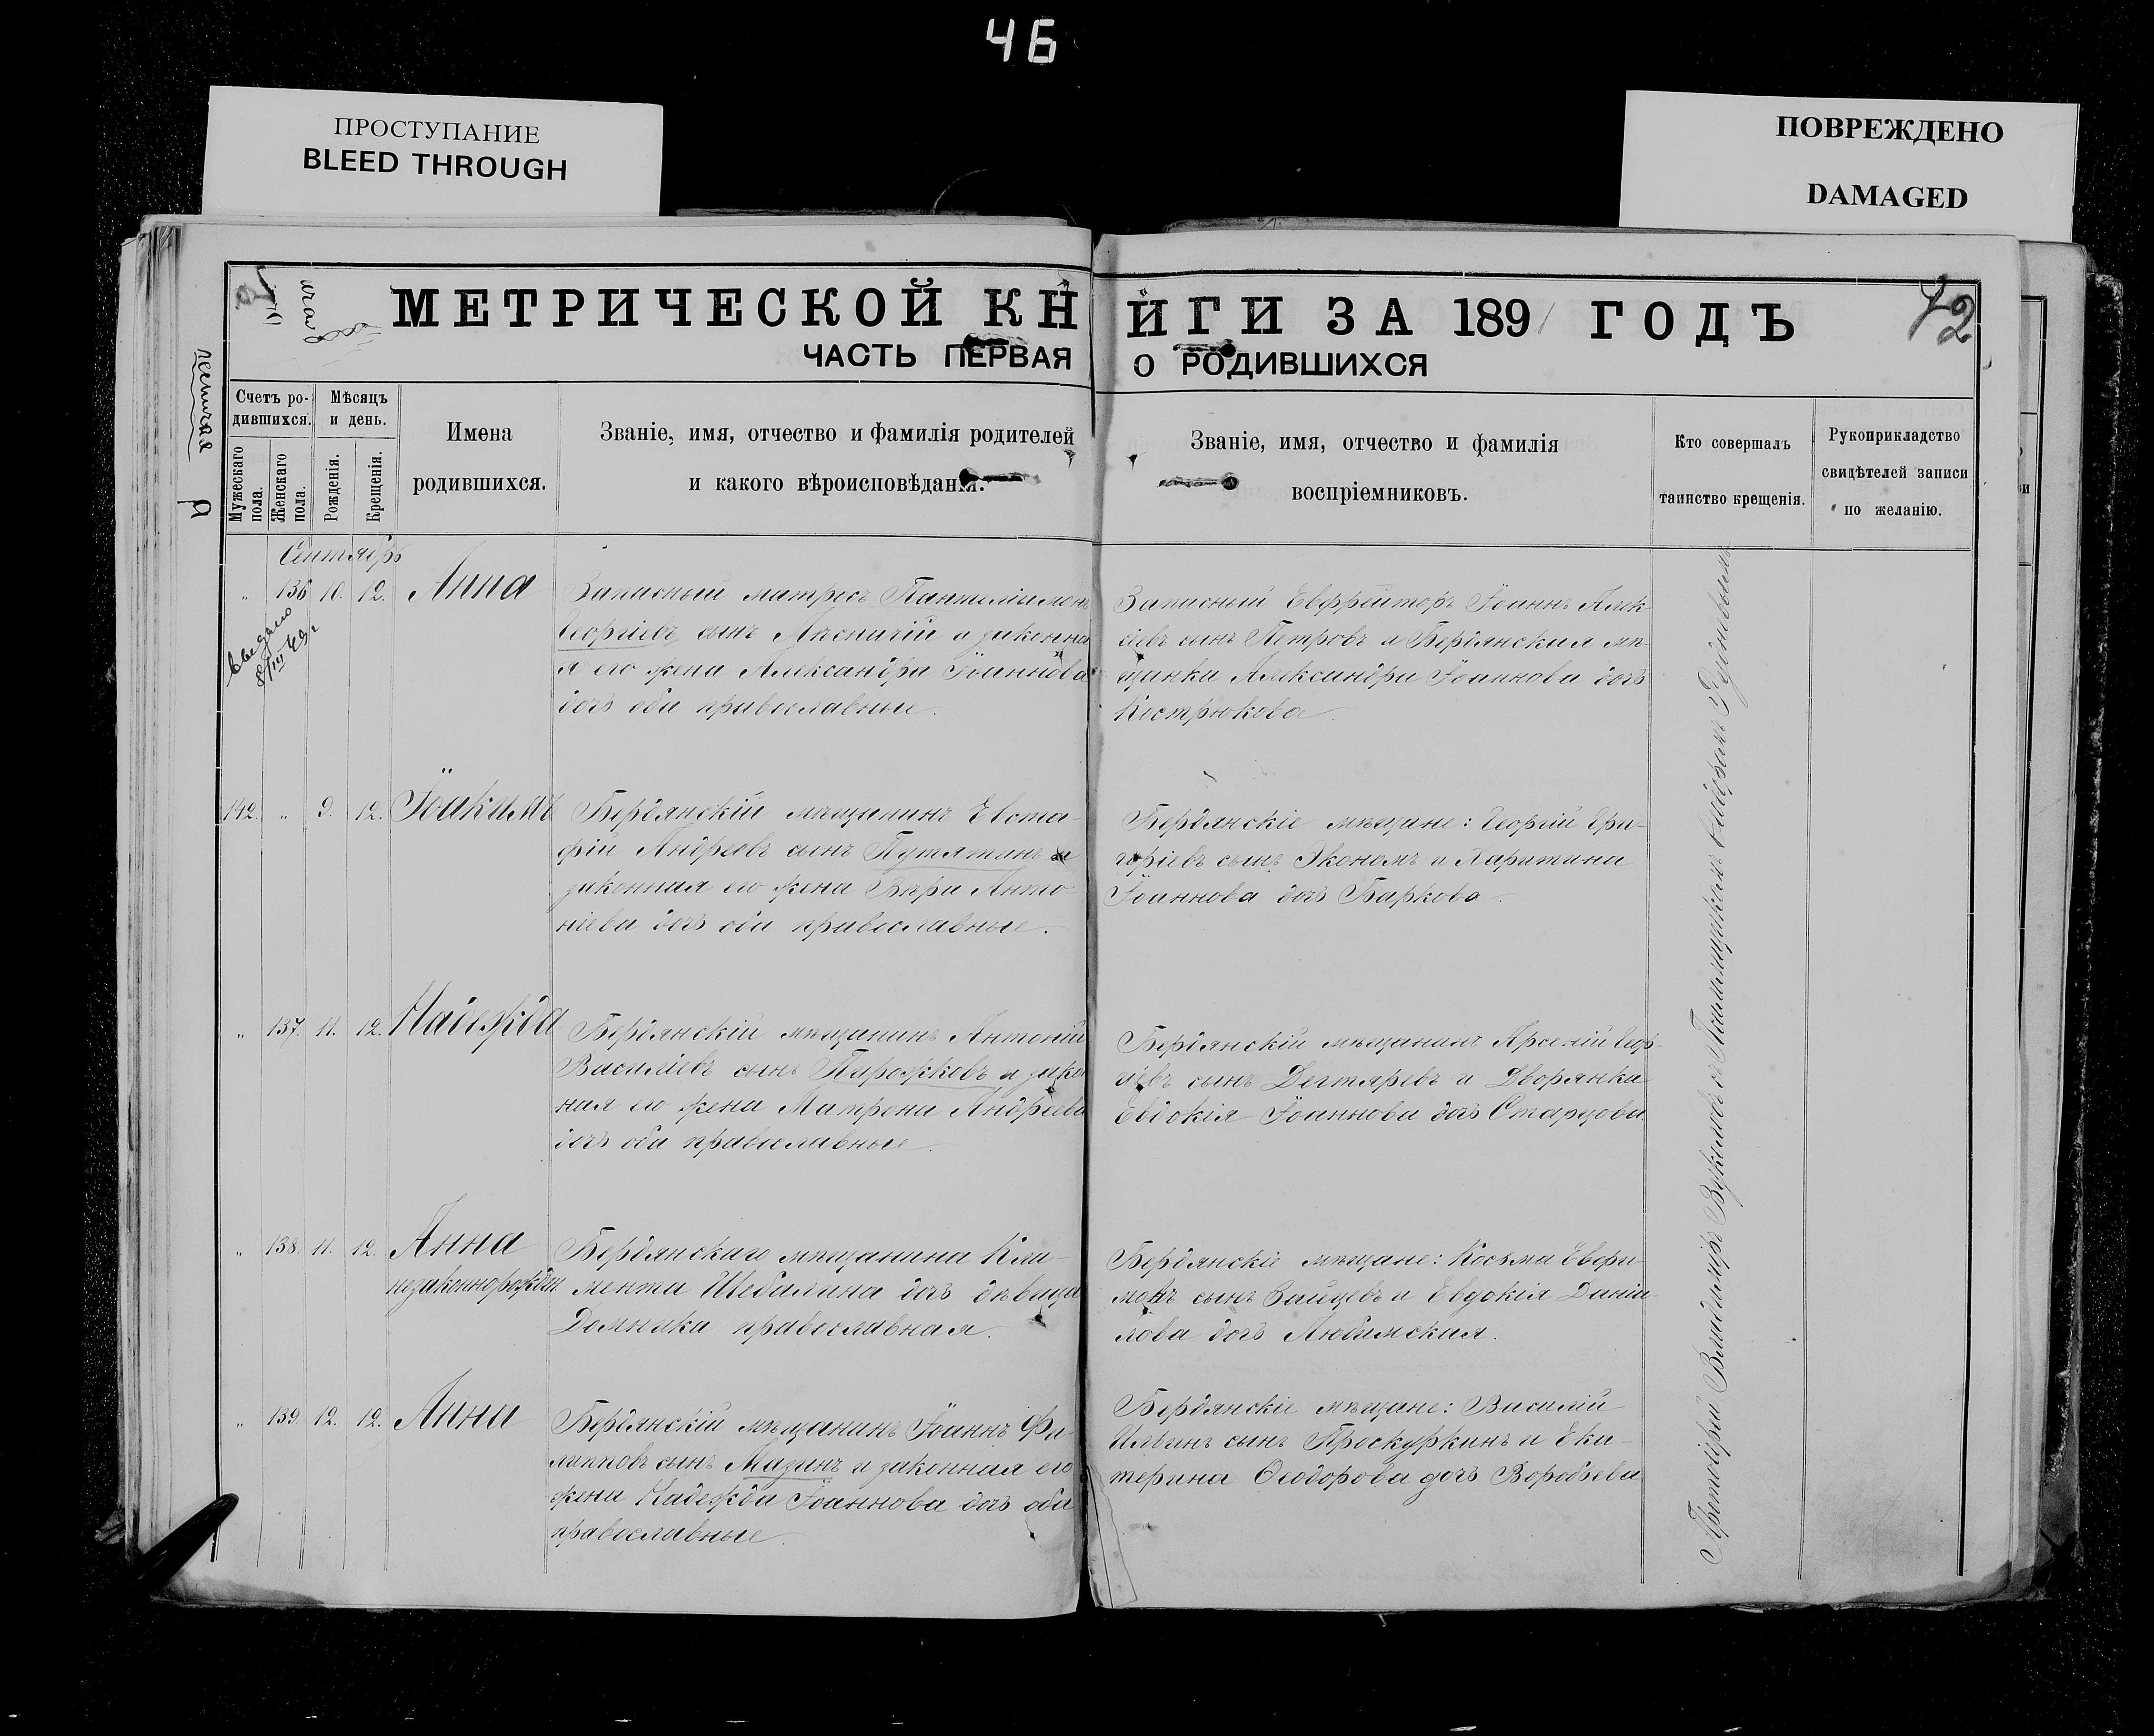 46
ПРОСТУПАНИЕ
BLEED THROUGH
ПОВРЕЖДЕНО
DAMAGED
МЕТРИЧЕСКОЙ КНИГИ ЗА 1891 ГОДЪ
42
ЧАСТЬ ПЕРВАЯ О РОДИВШИХСЯ
Счетъ ро-
дившихся.
Мужескаго
пола.
Женскаго
пола.
Мѣсяцъ
и день.
Рожденія.
Крещенія.
Имена
родившихся.
Званіе, имя, отчество и фамилія родителей
и какого вѣроисповѣданія.
Званіе, имя, отчество и фамилія
воспріемниковъ.
Кто совершалъ
таинство крещенія.
Рукоприкладство
свидѣтелей записи
по желанію.
Сентябрь
" 136 10. 12. Анна
Выдано
8/III 49 г
Запасный матросъ Пантелиимонъ
Георгіевъ сынъ Лѣсничій и законна
я его жена Александра Іоаннова
дочь оба православные.
Запасный Ефрейторъ Іоаннъ Алек-
сіевъ сынъ Петровъ и Бердянская мѣ-
щанка Александра Іоаннова дочь
Кострюкова.
142. " 9. 12. Іоакимъ
Бердянскій мѣщанинъ Евста-
фій Андреевъ сынъ Путятинъ и
законная его жена Вѣра Анто-
ніева дочь оба православные.
Бердянскіе мѣщане: Георгій Гри-
горіевъ сынъ Экономъ и Харитина
Іоаннова дочь Баркова.
" 137. 11. 12. Надежда
Бердянскій мѣщанинъ Антоній
Василіевъ сынъ Пирожковъ и зако
ная его жена Матрона Андреева
дочь оба православные.
Бердянскій мѣщанинъ Арсеній
сынъ Дегтяревъ и Дворянка
Евдокія Іоаннова дочь Старцова.
" 138. 11. 12. Анна
незаконнорожден.
Бердянскаго мѣщанина Кли-
мента Шебалина дочь дѣвица
Домника православная.
Бердянскіе мѣщане: Косьма
сынъ Зайцевъ и Евдокія Даніи-
лова дочь Любимская.
" 139. 12. 12. Анна
Бердянскій мѣщанинъ Іоаннъ Фи-
липповъ сынъ Мазинъ и законная его
жена Надежда Іоаннова дочь оба
православные.
Бердянскіе мѣщане: Василій
Ильинъ сынъ Проскуркинъ и Ека-
терина Ѳеодорова дочь Воробьева
Протоіерей Владиміръ